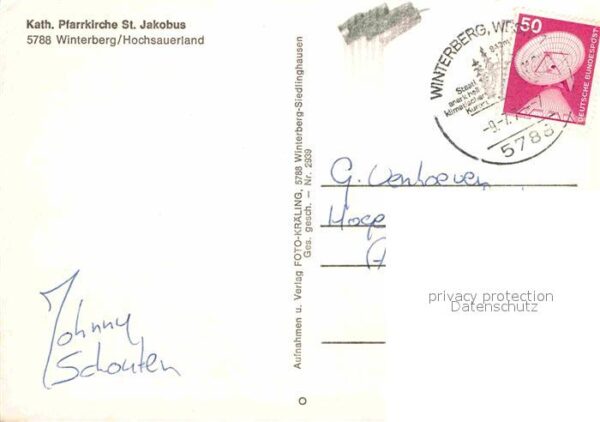 Kath. Pfarrkirche St. Jakobus
5788 Winterberg/Hochsauerland
Johnny
Schouten
Aufnahmen u. Verlag FOTO-KRÄLING, 5788 Winterberg-Siedlinghausen
Ges. gesch. – Nr. 2939
WINTERBERG, W
Staatl.
anerk. heil
klimatischer
Kurort
-9.-7.7
5788
50
DEUTSCHE BUNDESPOST
G. Venhoeven
privacy protection
Datenschutz